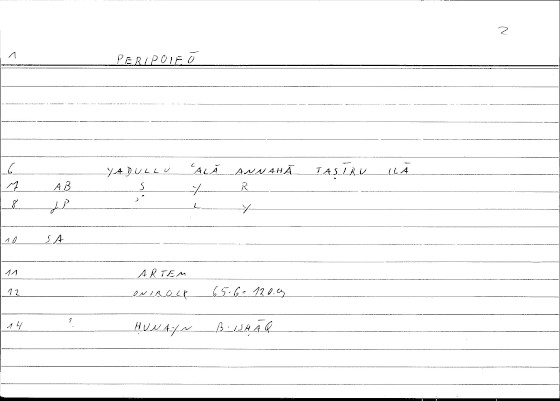 2
1 PERIPOIEŌ
6 YADULLU ʿALĀ ANNAHĀ TAṢĪRU ILĀ
7 AB Ṣ Y R
8 JP L Y
10 SA
11 ARTEM
12 ONIROCR 65.6-120.9
14 ḤUNAYN B.ISḤĀQ